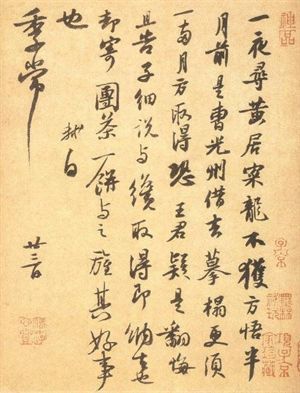 一夜尋黃居寀龍不獲方悟半
月前是曹光州借去摹搨更須
一兩月方取得恐王君疑是翻悔
且告子細說與纔取得即納去也
却寄團茶一餅與之旌其好事
也 軾白
季常
廿三日
神品
子京